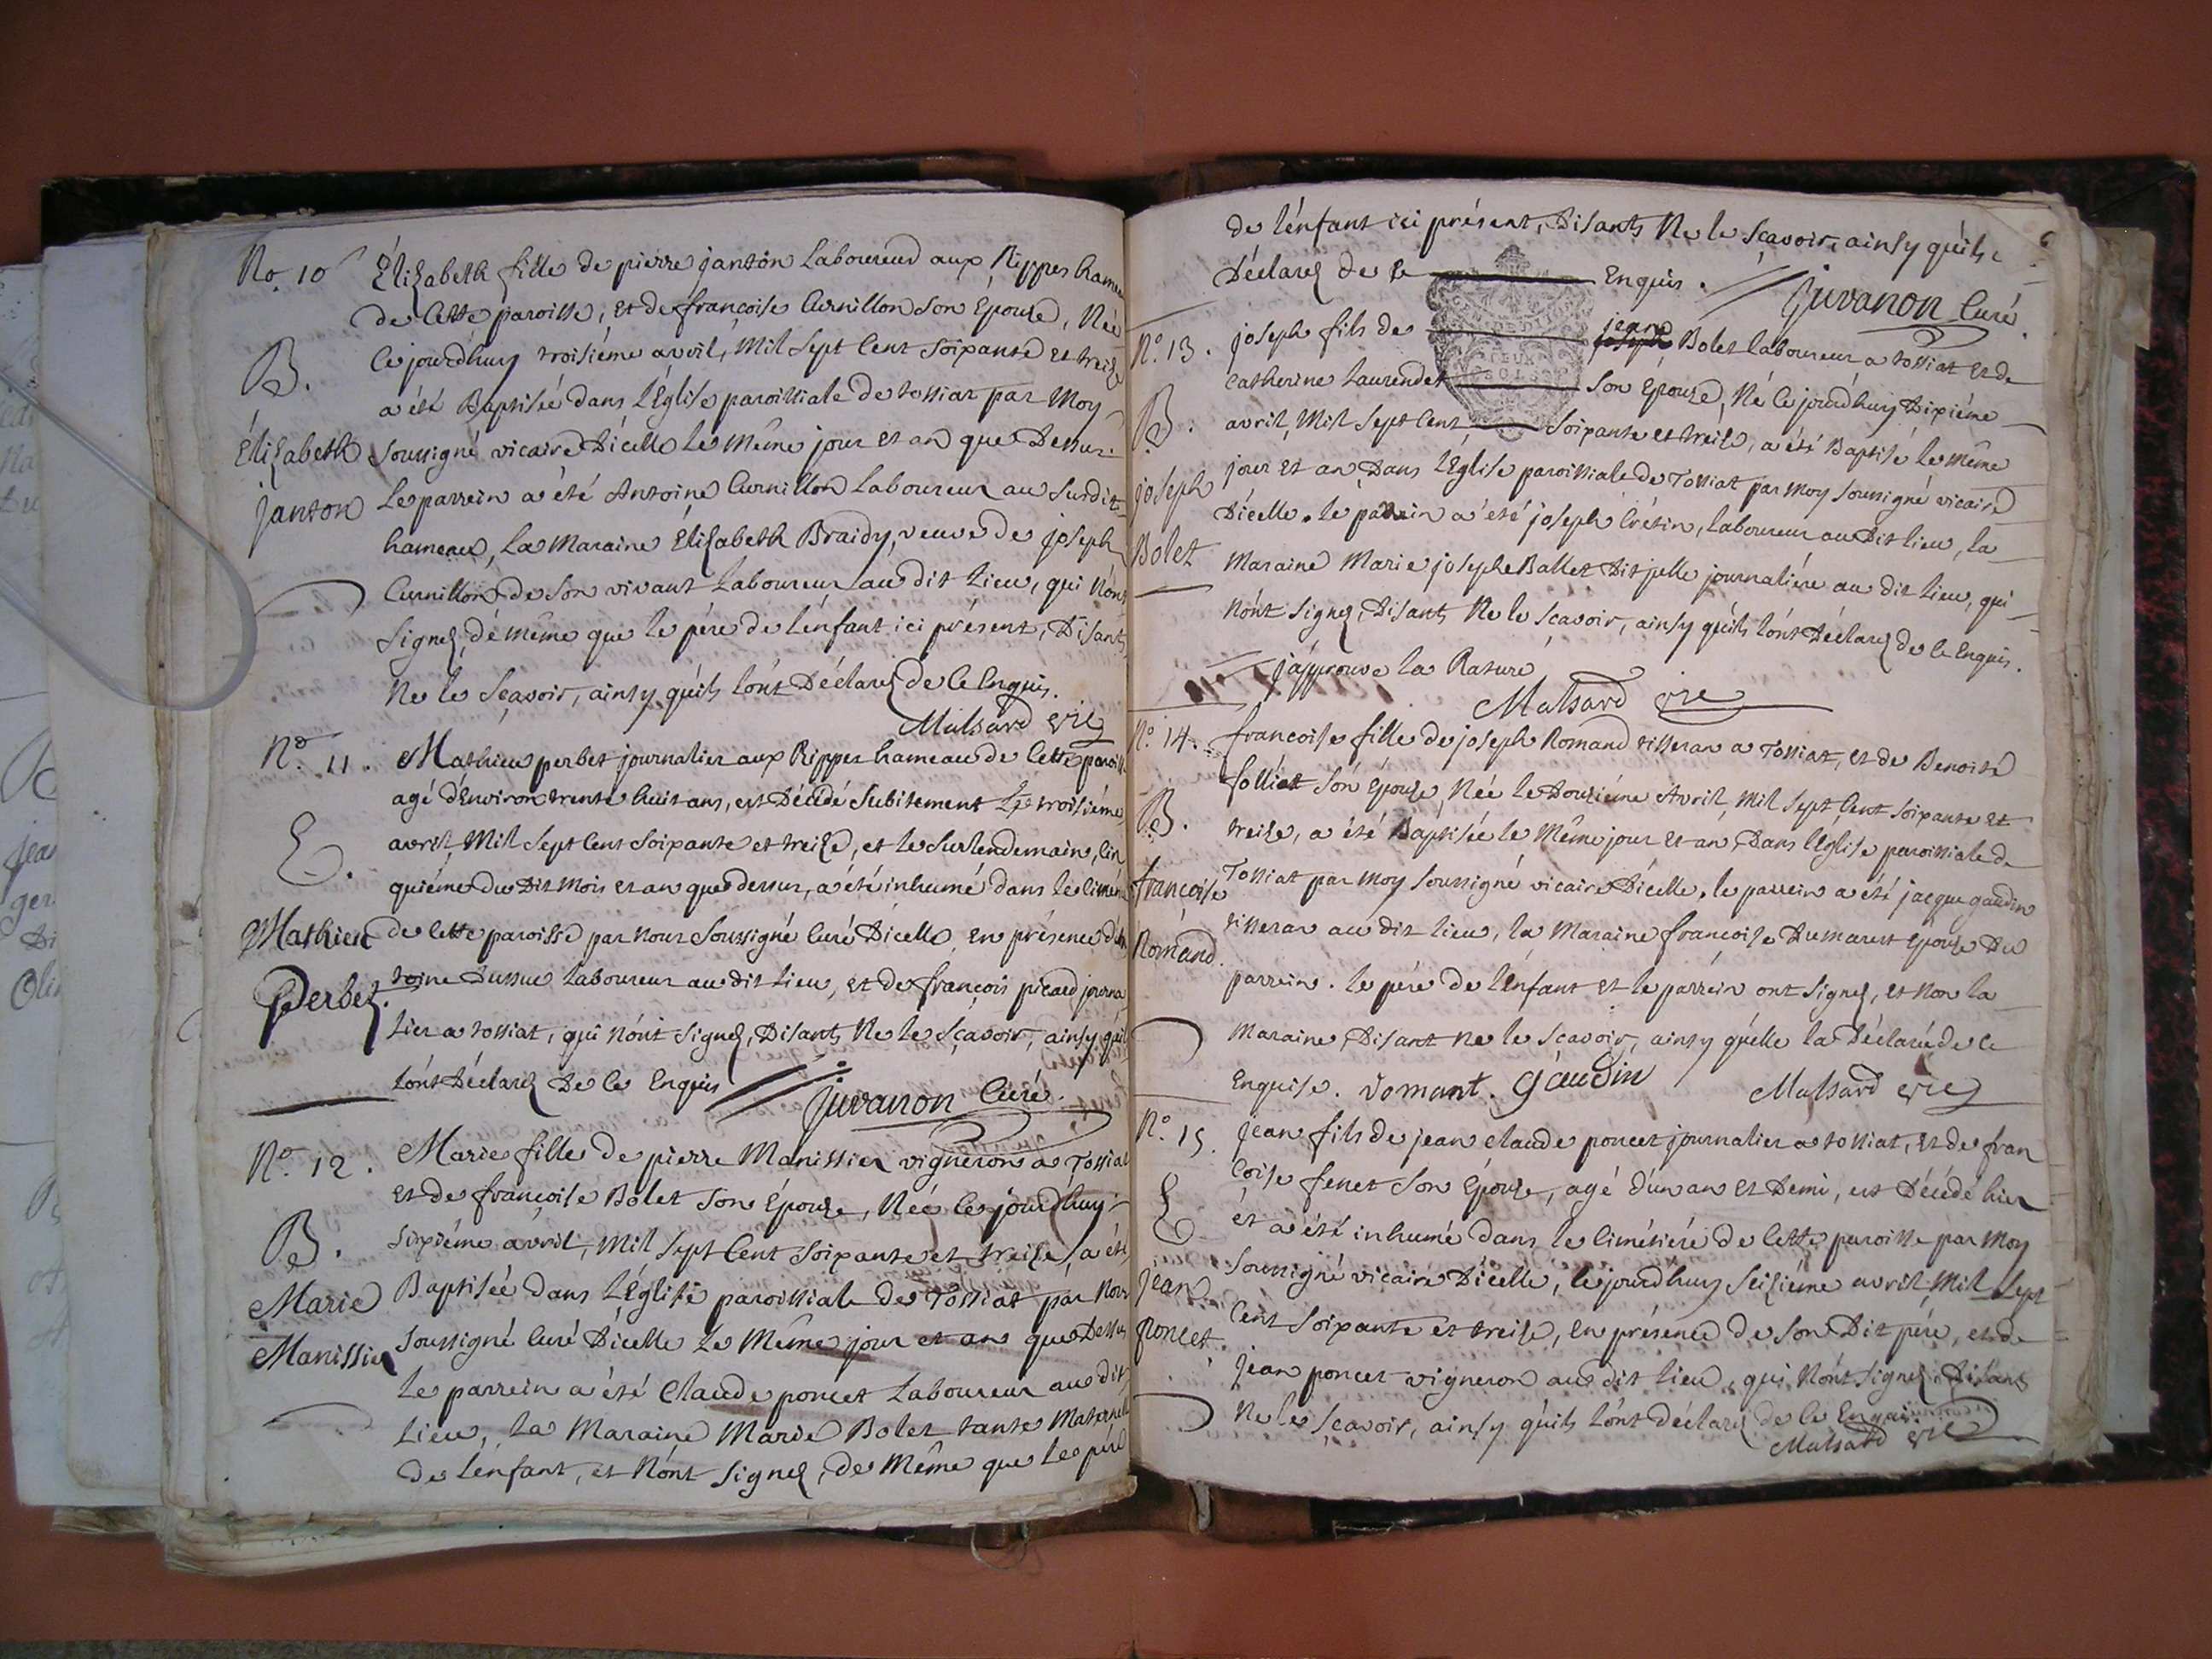 No. 10
Élizabeth fille de pierre janton Laboureur aux Rippes hameau
de Cette paroisse, et de françoise Curnillon Son Épouse, Née
B.
Ce jourd'huy troisiéme avril, Mil Sept Cent Soixante et treize
a été Baptisée dans L'Église paroissiale de tossiat par Moy
Élizabeth
Soussigné vicaire D'icelle le Même jour et an que Dessus.
janton
Le parrein a été Antoine Curnillon Laboureur au Surdit
hameau, La Maraine Élizabeth Braidy, veuve de joseph
Curnillon de Son vivant Laboureur au dit Lieu, qui N'ont
Signez, dé même que le pére de l'énfant ici présent, Disants
Ne le Sçavoir, ainsy qu'ils l'ont Déclarez de Ce Enquis.
Malsard vic
No. 11.
Mathieu perbet journalier aux Rippes hameau de Cette paroisse
agé d'Environ trente huit ans, est Décédé Subitement Le troisiéme
E.
avril, Mil Sept Cent Soixante et treize, et le Surlendemain, Cin
quiéme du Dit Mois et an que dessus, a été inhumé dans le Cimétiére
Mathieu
de Cette paroisse par Nous Soussigné Curé D'icelle, en présence d'An
Perbet.
toine Dussuc Laboureur au dit Lieu, et de françois picard journa
Lier a tossiat, qui N'ont Signez, Disants Ne le Sçavoir, ainsy qu'il
L'ont Déclarez De Ce Enquis
Juvanon Curé.
No. 12.
Marie fille de pierre Manissier vigneron a Tossiat
et de françoise Bolet Son Épouse, Née Ce jourd'huy
B.
Sixiéme avril, Mil Sept Cent Soixante et treize, a été
Marie
Baptisée dans L'Église paroissiale de Tossiat par Nous
Manissier
Soussigné Curé D'icelle Le Même jour et an que Dessus
Le parrein a été Claude poncet Laboureur au dit
Lieu, La Maraine Marie Bolet tante Maternelle
de L'enfant, et N'ont Signez, de Même que Le pére
6
de l'énfant ici présent, Disants Ne le Sçavoir, ainsy qu'ils
Déclarez de Ce Enquis.
Juvanon Curé.
No. 13.
joseph fils de joseph jean Bolet laboureur a tossiat et de
Catherine Laurendet Son Épouse, Né Ce jourd'huy Dixiéme
B.
avril, Mil Sept Cent Soixante et treize, a été Baptisé le même
joseph
jour et an, Dans l'Eglise paroissiale de Tossiat par moy Soussigné vicaire
Bolet
D'icelle. le parrein a été joseph Crétin, laboureur au Dit lieu, la
Maraine Marie josephe Ballet Dit jelle journaliére au dit Lieu, qui
N'ont Signez, Disants Ne le Sçavoir, ainsy qu'ils l'ont Déclarez de Ce Enquis.
J'approuve la Rature
Malsard vic
No. 14.
francoise fille de joseph Romand tisseran a Tossiat, et de Benoite
folliet Son Épouse, Née le Douziéme Avril, Mil Sept Cent Soixante et
B.
treize, a été Baptisée le Même jour et an, Dans l'Eglise paroissiale de
francoise
Tossiat par Moy Soussigné vicaire D'icelle. le parrein a été jacque gaudin
Romand.
tisseran au dit Lieu, la Maraine francoise Dumarest Épouse Du
parrein. le pére de l'énfant et le parrein ont Signez, et Non la
Maraine, Disant Ne le Sçavoir, ainsy qu'elle l'a Déclaré de Ce
Enquise. Romant. Gaudin Malsard vic
No. 15.
jean fils de jean claude poncet journalier a tossiat, et de fran
çoise fenet Son Épouse, agé d'un an et Demi, est Décédé hier
E.
et a été inhumé dans le Cimétiére de Cette paroisse par Moy
jean
Soussigné vicaire D'icelle, le jourd'huy Seiziéme avril, Mil Sept
poncet.
Cent Soixante et treize, en présence de Son Dit pére, et de
jean poncet vigneron au dit lieu, qui N'ont Signez, Disants
Ne le Sçavoir, ainsy qu'ils l'ont déclarez de Ce Enquis.
Malsard vic